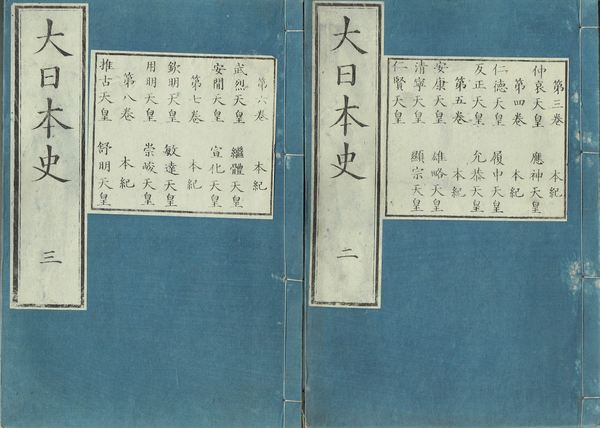 大日本史 二
第三卷 本紀
仲哀天皇 應神天皇
第四卷 本紀
仁德天皇 履中天皇
反正天皇 允恭天皇
第五卷 本紀
安康天皇 雄略天皇
清寧天皇 顯宗天皇
仁賢天皇
大日本史 三
第六卷 本紀
武烈天皇 繼體天皇
安閒天皇 宣化天皇
第七卷 本紀
欽明天皇 敏達天皇
用明天皇 崇峻天皇
第八卷 本紀
推古天皇 舒明天皇